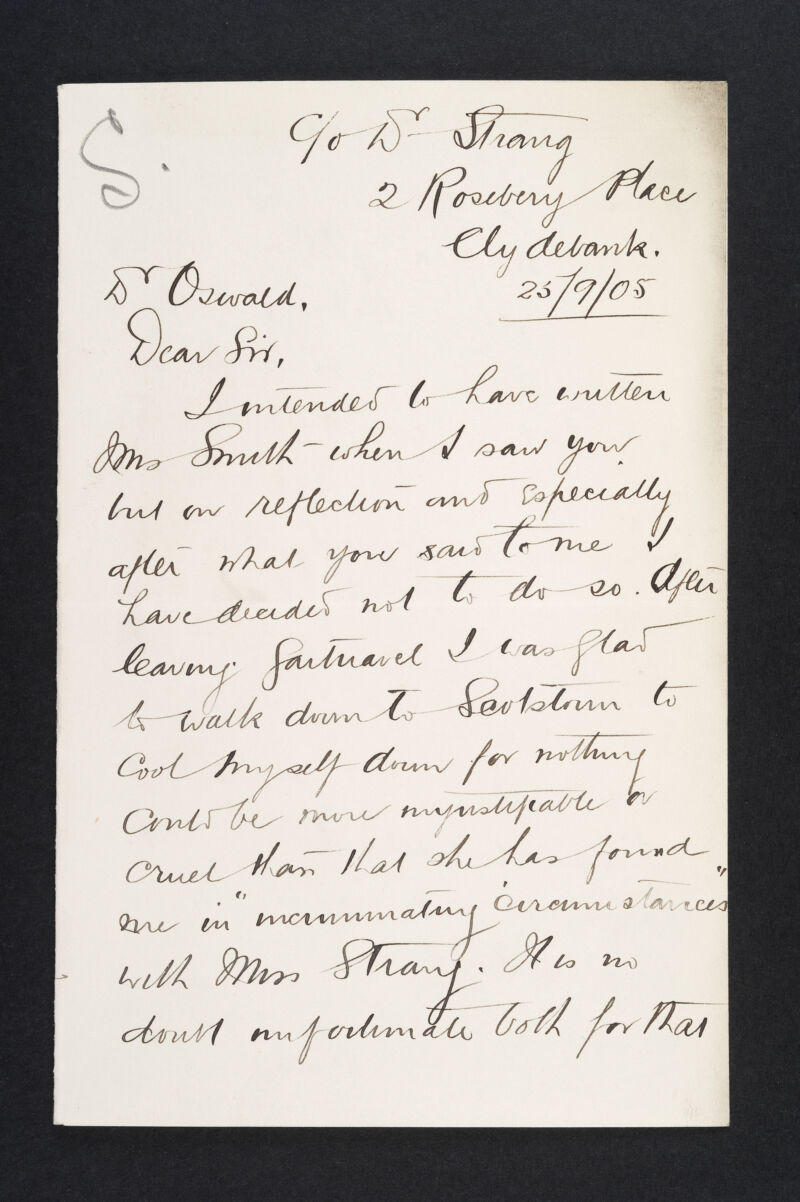 S.
c/o Dr Strang
2 Rosebery Place
Clydebank.
25/9/05
Dr Oswald.
Dear Sir,
I intended to have written
Mrs Smith when I saw you
but on reflection and especially
after what you said to me I
have decided not to do so. After
leaving Gartnavel I was glad
to walk down to Scotstoun to
cool myself down for nothing
could be more unjustifiable or
cruel than that she has found
me in "incriminating circumstances"
with Miss Strang. It is no
doubt unfortunate both for that